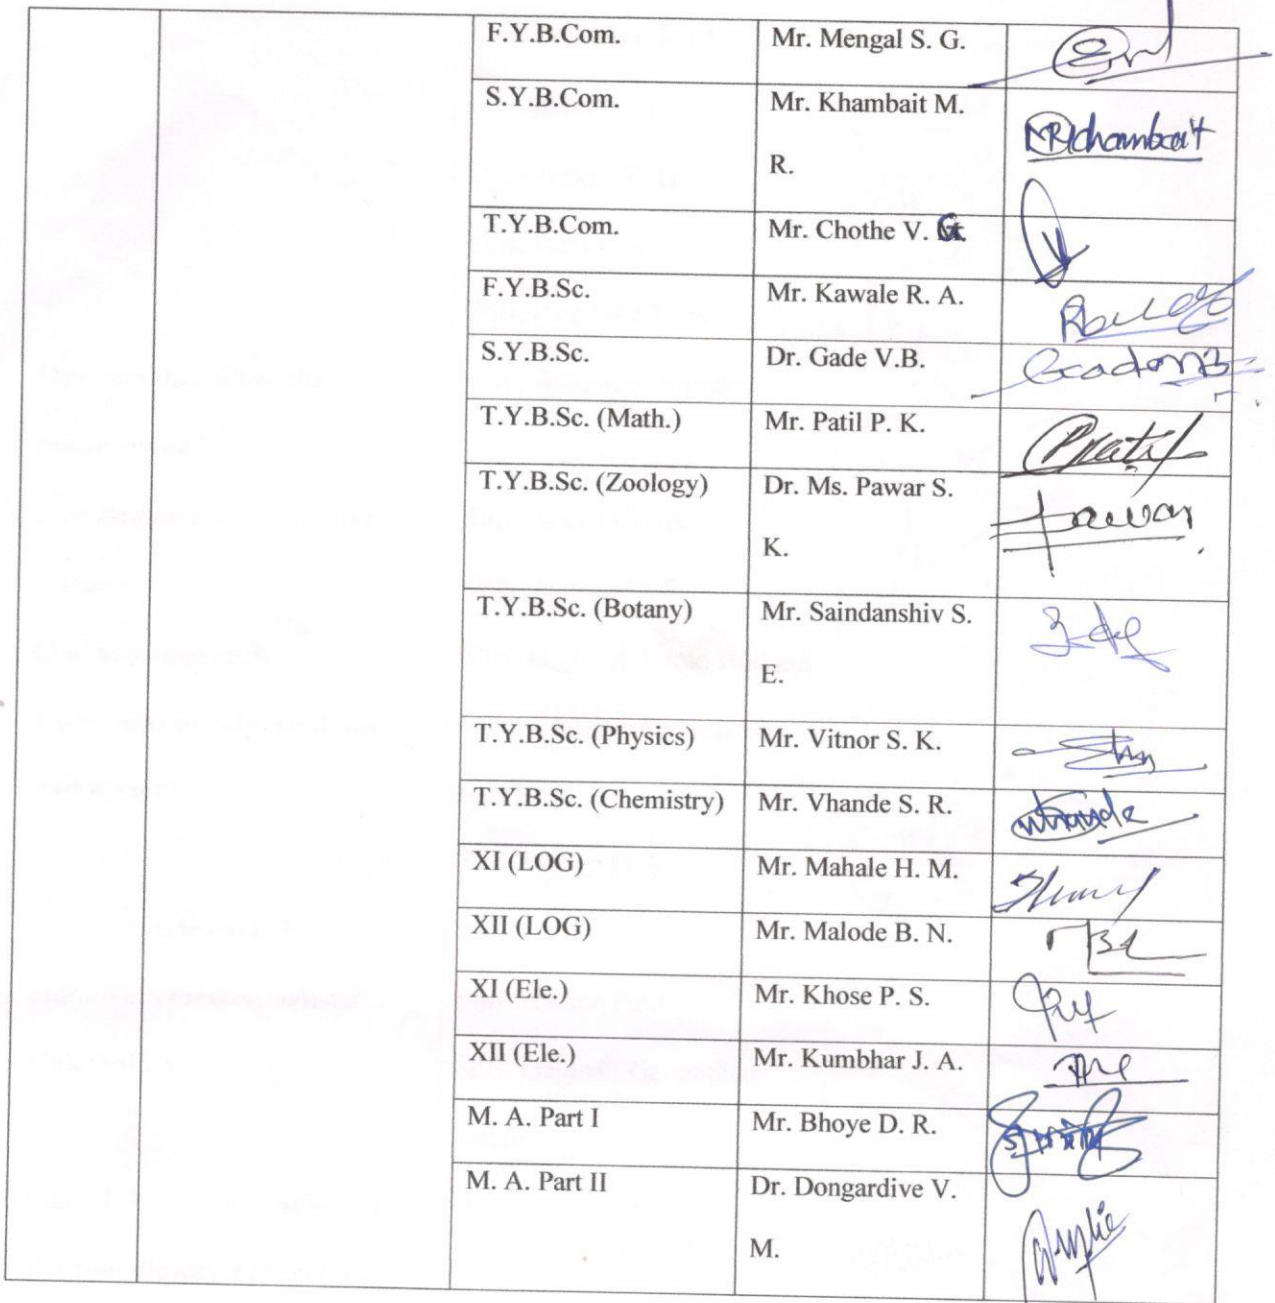 F.Y.B.Com. Mr. Mengal S. G.
S.Y.B.Com. Mr. Khambait M.
R. MRKhambait
T.Y.B.Com. Mr. Chothe V. G.
F.Y.B.Sc. Mr. Kawale R. A.
S.Y.B.Sc. Dr. Gade V.B.
T.Y.B.Sc. (Math.) Mr. Patil P. K. PPatil
T.Y.B.Sc. (Zoology) Dr. Ms. Pawar S. Pawar
K.
T.Y.B.Sc. (Botany) Mr. Saindanshiv S.
E.
T.Y.B.Sc. (Physics) Mr. Vitnor S. K.
T.Y.B.Sc. (Chemistry) Mr. Vhande S. R. Vhande
XI (LOG) Mr. Mahale H. M.
XII (LOG) Mr. Malode B. N.
XI (Ele.) Mr. Khose P. S.
XII (Ele.) Mr. Kumbhar J. A.
M. A. Part I Mr. Bhoye D. R.
M. A. Part II Dr. Dongardive V.
M.